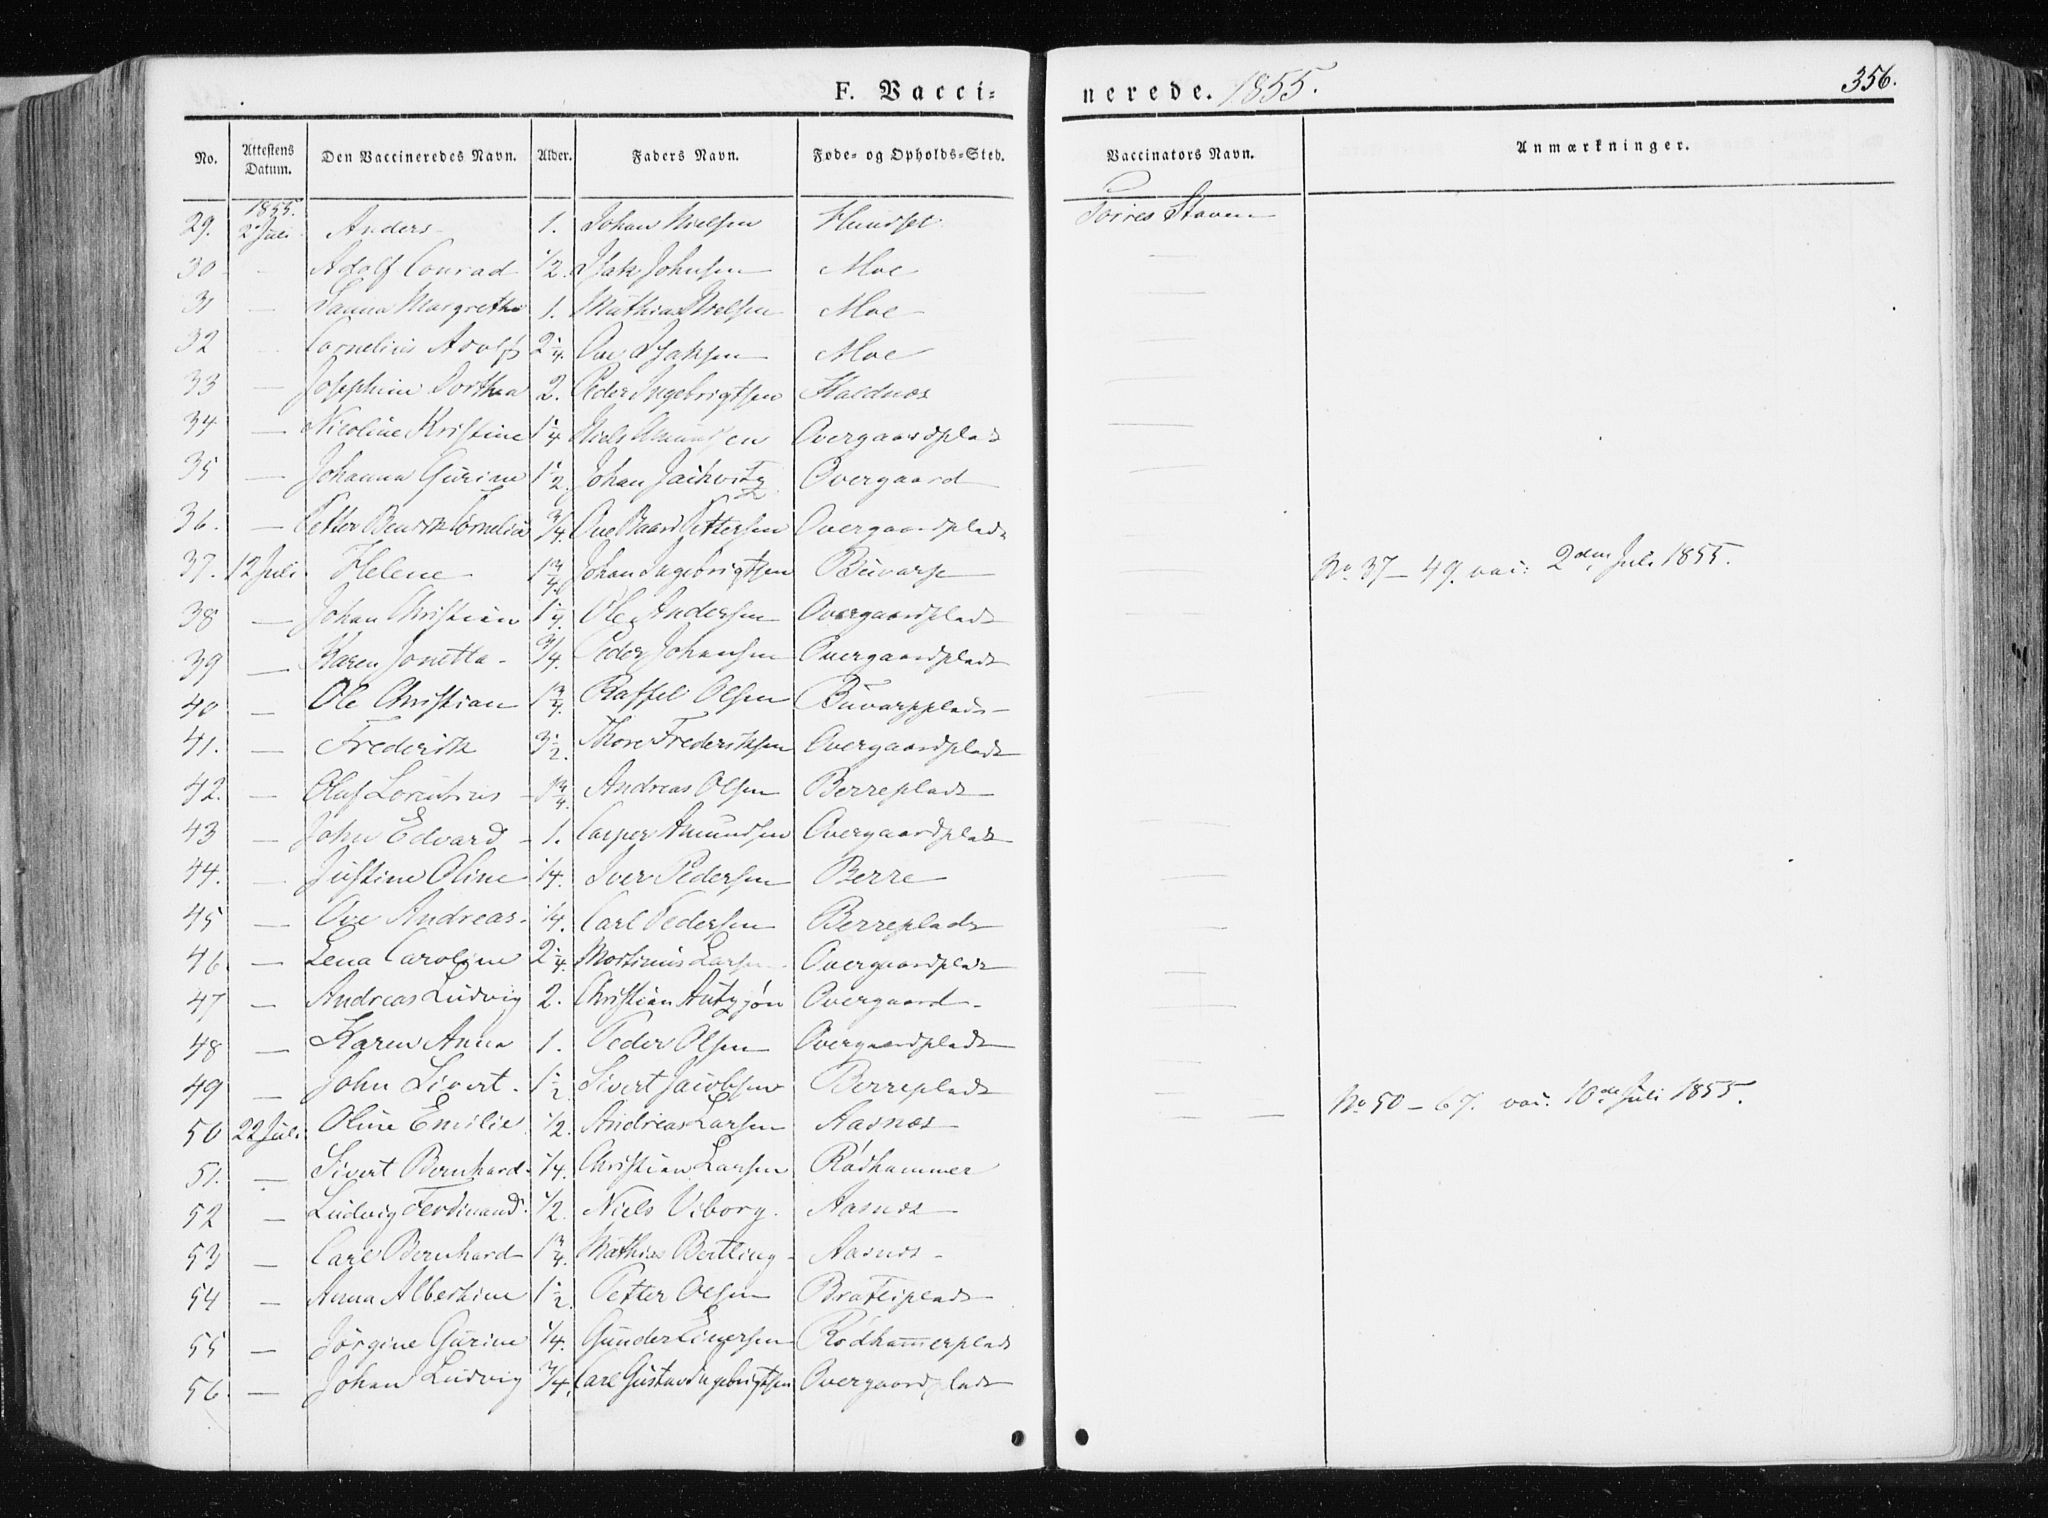 F. Vacci=
nerede. 1855.
356.
No. Attestens Datum. Den Vaccineredes Navn. Alder. Faders Navn. Føde- og Opholds-Sted. Vaccinators Navn. Anmærkninger.
1855.
29. 2 Juli Anders 1. Johan Nielsen Hundset Torres Staven
30 — Adolf Conrad 1/2. Isak Johnsen Moe
31 — Hanna Margrethe 1. Mathias Nielsen Moe
32 Cornelius Adolf 2 1/4. Ove Isaksen Moe
33 — Josephine Dorthea 2. Peder Ingebrigtsen Haldnæs
34 — Nicoline Kristine 1 1/4 Niels Amundsen Overgaardplads
35 — Johanna Gurine 1 1/2. Johan Overgaard
36. — Petter Cornelius 3/4. Ove Pettersen Overgaardplads
37. 12 Juli Helene 1 3/4. Johan Ingebrigtsen Buvarp No 37 — 49. vac: 2den Juli 1855.
38 — Johan Christian 1 1/4. Ole Andersen Overgaardplads
39 — Karen Jonetta 3/4. Peder Johansen Overgaardplads
40 — Ole Christian 1 3/4. Raffel Olsen Buvarpplads
41. — Frederik 3 1/2. Thore Frederiksen Overgaardplads
42. — Oluf 1 3/4. Andreas Olsen Berreplads
43 — John Edvard 1. Casper Amundsen Overgaardplads
44. — Justine Oline 1/4. Iver Pedersen Berre
45 — Ove Andreas 1/4. Carl Pedersen Berreplads
46. — Lena Caroline 2 1/4. Martinus Larsen Overgaardplads
47 — Andreas Ludvig 2. Christian Overgaard
48 — Karen Anna 1. Peder Olsen Overgaardplads
49 — John Sivert 1 1/2. Sivert Jacobsen Berreplads
50 22 Juli Oline Emilie 1/2. Andreas Larsen Aasnæs No 50 — 67. vac. 10de Juli 1855.
51. — Sivert Bernhard 1/4. Christian Larsen Rødhammer
52 — Ludvig Ferdinand 1/2. Niels Viborg. Aasnæs
53 — Carl Bernhard 1 3/4. Mathias Bertling Aasnæs
54 — Anna Albertine 1 1/2. Petter Olsen Bratliplads
55 — Jørgine Gurine 1/4. Gunder Einersen Rødhamerplads
56 — Johan Ludvig 3/4. Carl Gustav Ingebrigtsen Overgaardplads